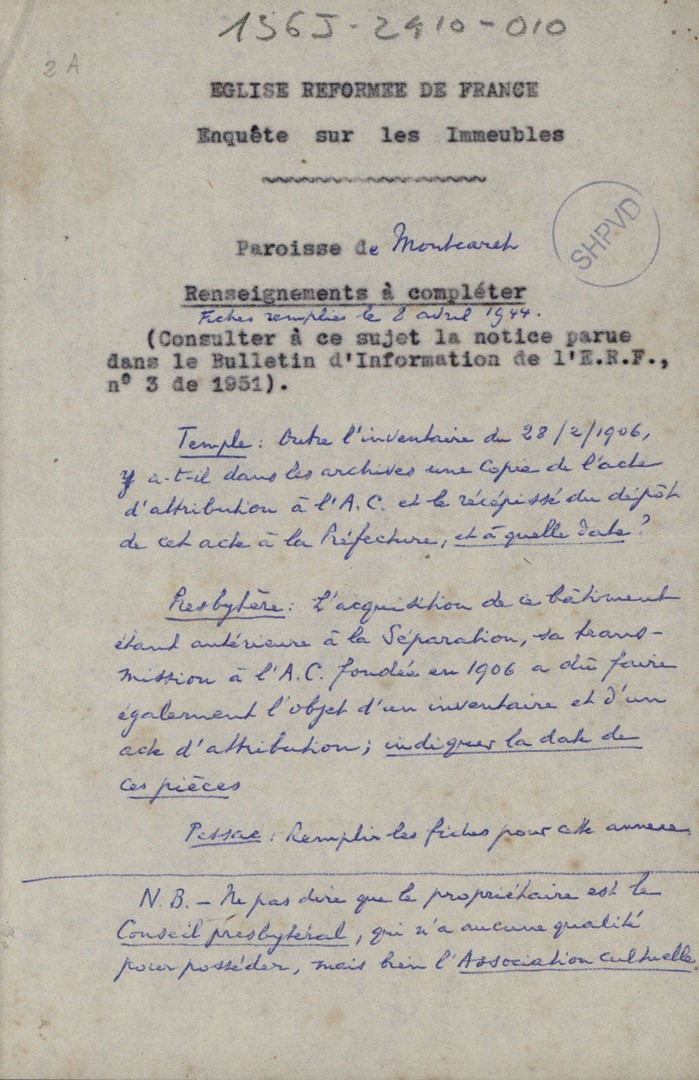 1S6J-2410-010
2 A
EGLISE REFORMEE DE FRANCE
Enquête sur les Immeubles
SHPVD
Paroisse de Montcaret
Renseignements à compléter
Fiches remplies le 8 avril 1944.
(Consulter à ce sujet la notice parue
dans le Bulletin d'Information de l'E.R.F.,
n° 3 de 1951).
Temple : Outre l'inventaire du 28/2/1906,
y a-t-il dans les archives une copie de l'acte
d'attribution à l'A.C. et le récépissé du dépôt
de cet acte à la Préfecture, et à quelle date ?
Presbytère : L'acquisition de ce bâtiment
étant antérieure à la Séparation, sa trans-
mission à l'A.C. fondée en 1906 a dû faire
également l'objet d'un inventaire et d'un
acte d'attribution ; indiquer la date de
ces pièces
Pessac : Remplir les fiches pour cette annexe.
N.B. - Ne pas dire que le propriétaire est le
Conseil presbytéral, qui n'a aucune qualité
pour posséder, mais bien l'Association cultuelle